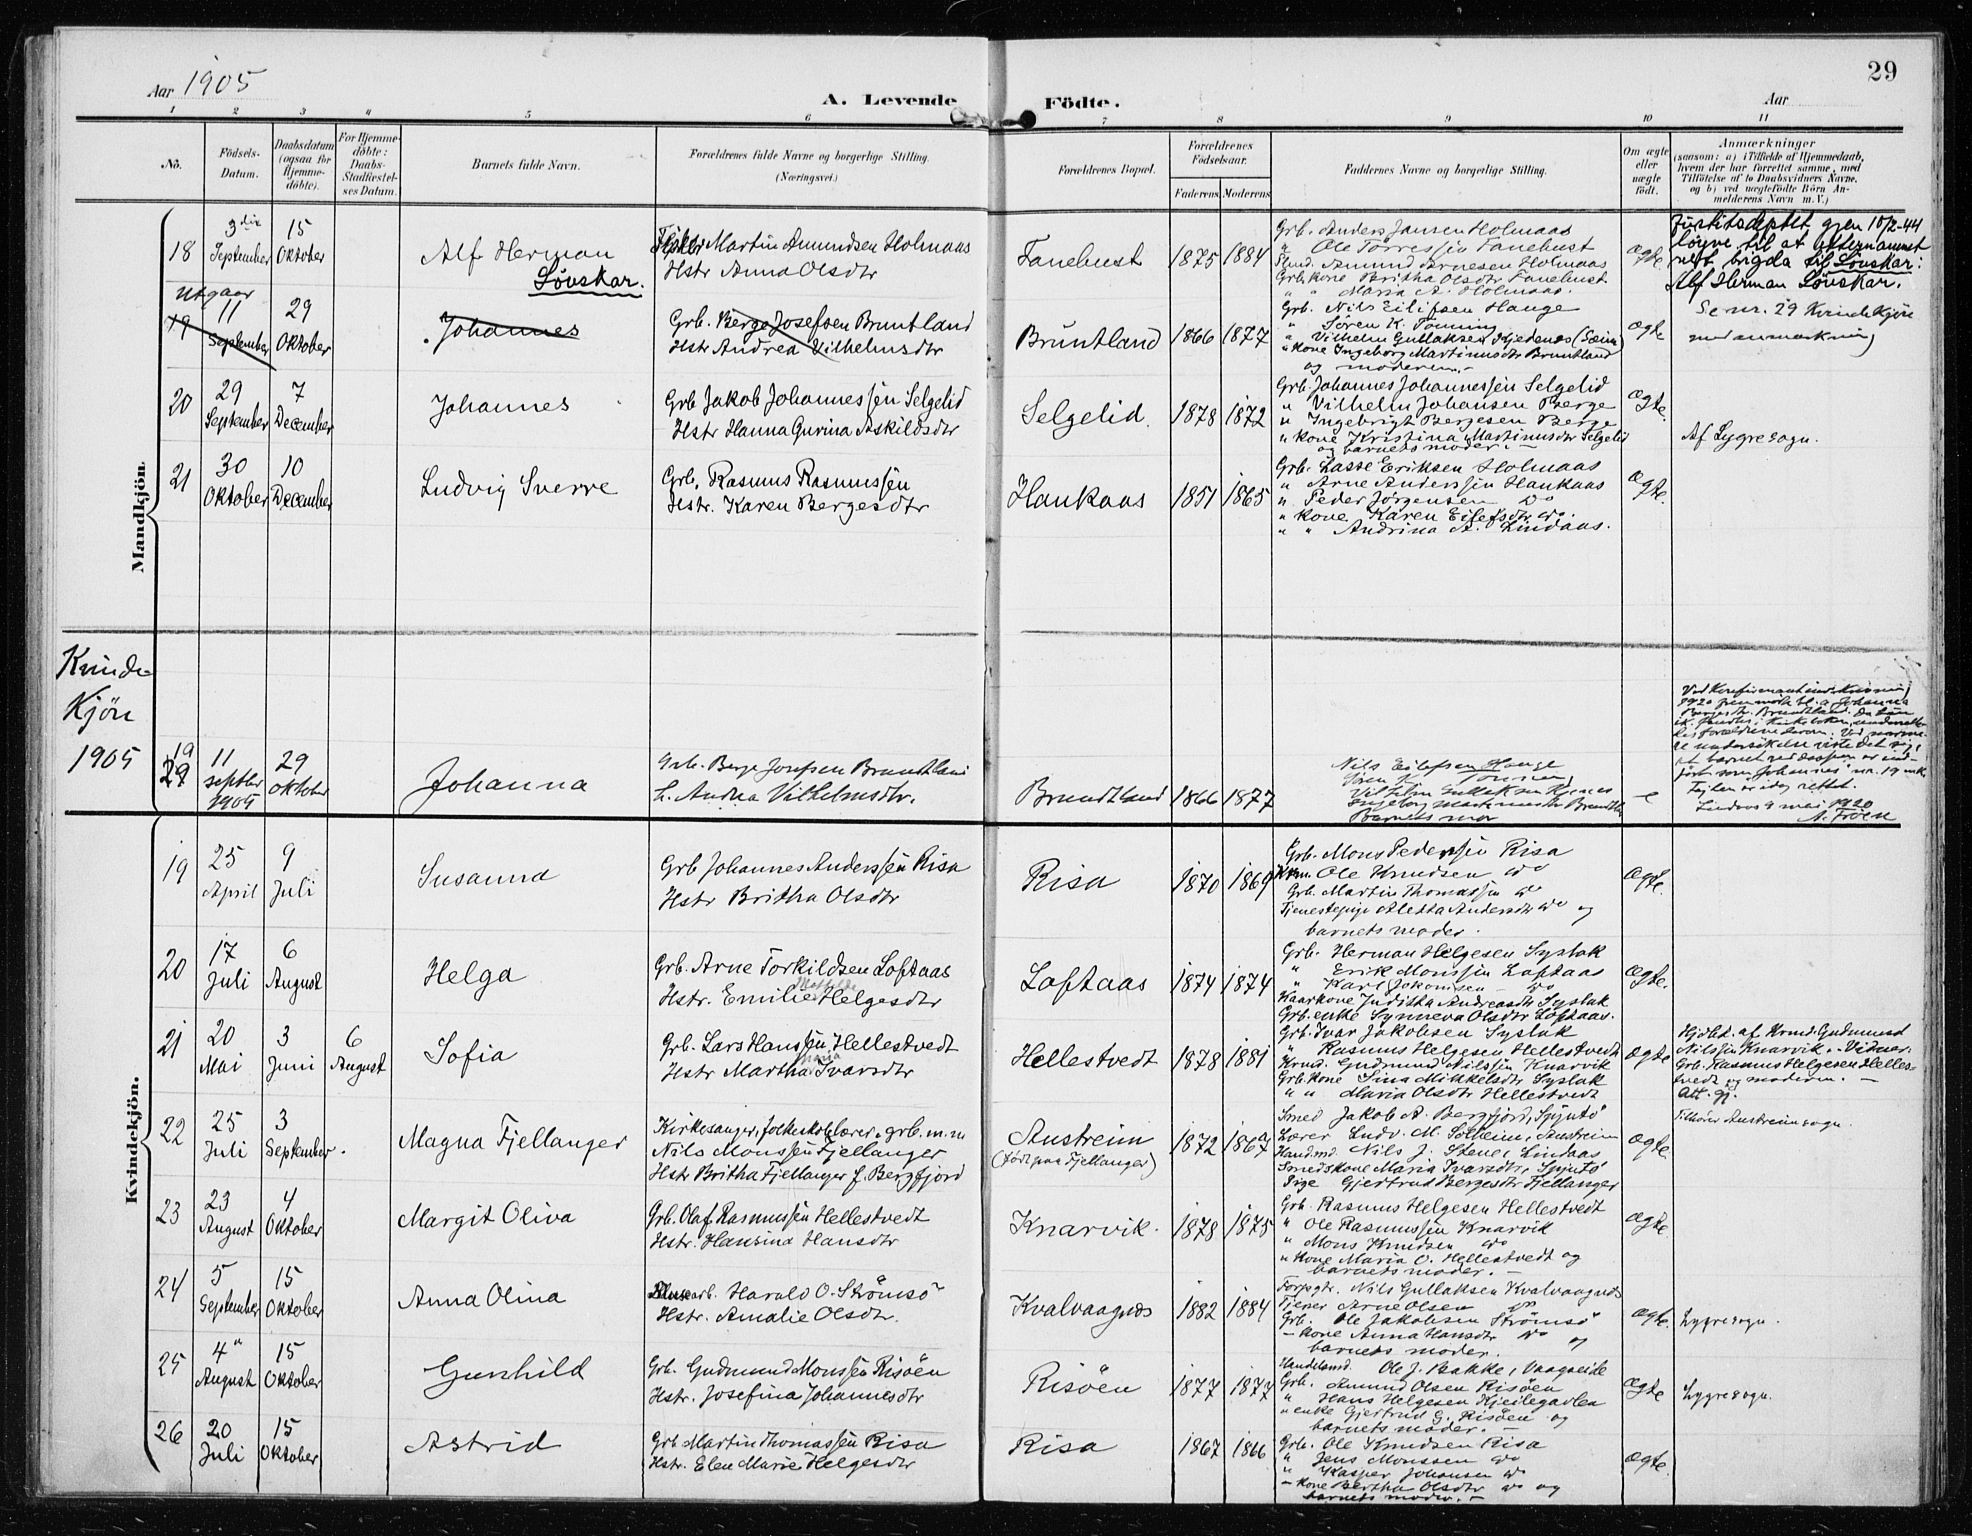 29
Aar 1905
A. Levende Födte.
Aar
1 2 3 4 5 6 7 8 9 10 11
No.
Födsels-Datum.
Daabsdatum (ogsaa for Hjemmedöbte).
For Hjemmedöbte: Daabs-Stadfæstelses Datum.
Barnets fulde Navn.
Forældrenes fulde Navne og borgerlige Stilling.
(Næringsvei.)
Forældrenes Bopæl.
Forældrenes Födselsaar.
Faderens Moderens
Faddernes Navne og borgerlige Stilling.
Om ægte eller uægte födt.
Anmærkninger
(saasom: a) i Tilfælde af Hjemmedaab, hvem der har forrettet samme, med Tilföielse af to Daabsvidners Navne, og b) ved uægtefödte Börn Anmelderens Navn m. V.)
Mandkjön.
18
3die September
15 Oktober
Alf Herman
Lövskar.
Martin Amundsen Holmaas
Hstr Anna Olsdtr
Fanebust
1875 1884
Grb. Anders Jansen Holmaas
" Ole Torressen Fanebust
Amund Arnesen Holmaas
Grb. kone Britha Olsdtr Fanebust
" " Maria A. Holmaas.
Ægte
Justitsdeptet gjen 10/2-44
löyve til at etternamnet
vert brigda til Lövskar:
Alf Herman Lövskar.
Utgaar
19
11 September
29 Oktober
Johannes
Grb. Berge Josefsen Bruntland
Hstr Andrea Vilhelmsdtr
Bruntland
1866 1877
Grb. Nils Eilifsen Hauge
" Sören K. Tonning
" Vilhelm Gullaksen Hjedenes (Sæim)
" kone Ingeborg Martinusdtr Bruntland
og moderen. -
Ægte
Se nr. 29 Kvindekjön
med anmerkning
20
29 September
7 December
Johannes
Grb Jakob Johannessen Selgelid
Hstr Hanna Gurina Askildsdtr
Selgelid.
1878 1872
Grb. Johannes Johannessen Selgelid
" Vilhelm Johansen Berge
" Ingebrigt Bergesen Berge
" kone Kristina Martinusdtr Selgelid
og barnets moder. -
Ægte.
Af Lygre sogn.
21
30 Oktober
10 December
Ludvig Sverre
Grb. Rasmus Rasmussen
Hstr. Karen Bergesdtr
Haukaas
1851 1865
Grb. Lasse Eriksen Holmaas
" Arne Anderssen Haukaas
" Peder Jörgensen do
" kone Karen Eilefsdtr do.
" " Andrina A. Lindaas.
Ægte.
Kvinde
Kjön
1905
19
29
11 septbr 1905
29 oktober
Johanna
Grb. Berge Josefsen Brundtland
h. Andrea Vilhelmsdtr.
Brundtland
1866 1877
Nils Eilefsen Hauge
Sören K. Tonning
Vilhelm Gullaksen Hjenes
Ingeborg Martinusdtr Brundtl.
Barnets mor
e
Ved Konfirmantindskrivning
1920 fremmötte bl. a. Johanna
Bergesdtr. Brundtland. Da hun
ik. fandtes i kirkeboken, underrettedes
forældrene derom. Ved nærmere
undersökelse viste det sig,
at barnet ved daapen er indfört
som Johannes nr. 19 mk.
Feilen er idag rettet.
Lindaas 9 mai 1920
A. Fröen
Kvindekjön.
19
25 April
9 Juli
Susanna
Grb Johannes Anderssen Risa
Hstr Britha Olsdtr
Risa
1870 1869
Grb. Mons Pederssen Risa
Ole Knudsen do
Grb. Martin Thomassen do
Tjenestepige Aletta Andersdtr do og
barnets moder.
Ægte.
20
17 Juli
6 August
Helga
Grb. Arne Torkildsen Loftaas
Mathilde
Hstr. Emilie Helgesdtr
Loftaas
1874 1874
Grb. Herman Helgesen Syslak
" Erik Monssen Loftaas
" Karl Jokomsen - do
Kaarkone Juditha Andreasdtr Syslak
Grb. enke Synneva Olsdtr Loftaas.
Ægte.
21
20 Mai
3 Juni
6 August
Sofia
Grb. Lars Hanssen Hellestvedt
Maria
Hstr Martha Ivarsdtr
Hellestvedt
1878 1881
Grb. Ivar Jakobsen Syslak
" Rasmus Helgesen Hellestvedt
Krmd. Gudmund Nilssen Knarvik
Grb. kone Sina Mikkelsdtr Syslak
" " Maria Olsdtr Hellestvedt
Ægte
Hjdbt. af Krmd. Gudmund
Nilssen Knarvik. - Vidner:
Grb. Rasmus Helgesen Hellestvedt
og moderen. -
Att. gj.
22
25 Juli
3 September.
Magna Fjellanger
Kirkesanger, folkeskolelærer, grb. m. m
Nils Monssen Fjellanger
Hstr Britha Fjellanger f. Bergfjord
Austreim
(födt paa Fjellanger)
1872 1867
Smed Jakob A. Bergfjord, Spjutö
Lærer Ludv. M. Solheim, Austreim
Handmd. Nils J. Stene, Lindaas
Smedskone Maria Ivarsdtr, Spjutö
Pige Gjertrud Bergesdtr Fjellanger
Ægte.
Tilhörer Austreim sogn.
23
23 August
4 Oktober
Margit Oliva
Grb. Olaf Rasmussen Hellestvedt
Hstr. Hansina Hansdtr
Knarvik.
1878 1875
Grb. Rasmus Helgesen Hellestvedt
" Ole Rasmussen Knarvik
" Mons Knudsen do
" kone Maria O. Hellestvedt og
barnets moder. -
Ægte.
24
5 September
15 Oktober
Anna Olina
Harald O. Strömsö
Hstr. Amalie Olsdtr.
Kvalvaagnes
1882 1884
Forpgtr. Nils Gullaksen Kvalvaagnes
Tjener Arne Olsen do
Grb. Ole Jakobsen Strömsö
- kone Anna Hansdtr do og
barnets moder.
Ægte.
Lygre sogn.
25
4" August
15 Oktober
Gunhild
Grb. Gudmund Monssen Risöen
Hstr. Josefina Johannesdtr
Risöen
1877 1877
Handelsmd. Ole J. Bakke, Vaageide
Grb. Amund Olsen Risöen
" Hans Helgesen Kjeilegavlen
" enke Gjertrud G. Risöen og
barnets moder. -
Ægte
Lygre sogn.
26
20 Juli
15 Oktober
Astrid
Grb Martin Thomassen Risa
Hstr. Elen Marie Helgesdtr
Risa
1867 1866
Grb. Ole Knudsen Risa
" Jens Monssen do
" Kasper Johansen do
- kone Bertha Olsdtr do og
barnets moder. -
Ægte.